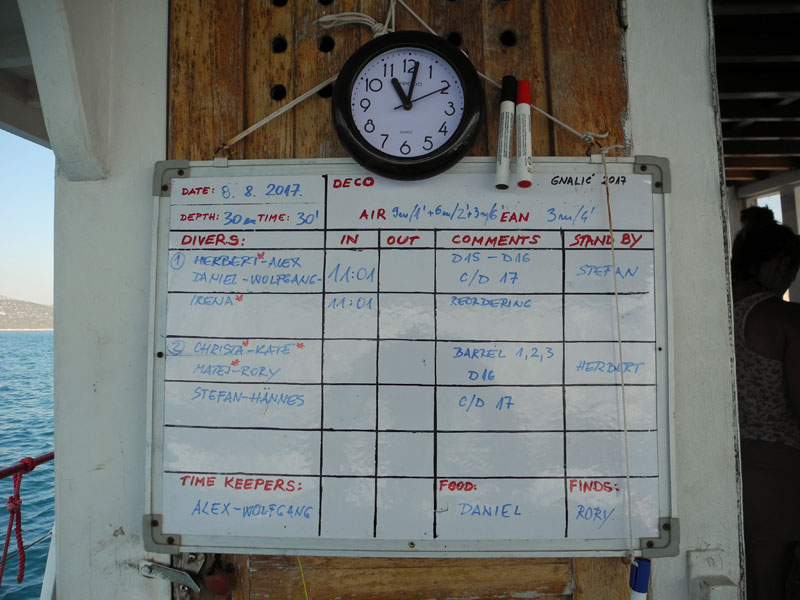 12
1
2
3
4
5
6
7
8
9
10
11
quartz
DATE: 8. 8. 2017.
DECO
GNALIĆ 2017
DEPTH: 30m TIME: 30'
AIR 9m/1'+6m/2'+3m/6' EAN 3m/4'
DIVERS: IN OUT COMMENTS STAND BY
1 HERBERT*-ALEX D15 - D16
DANIEL-WOLFGANG- 11:01 C/D 17 STEFAN
IRENA* 11:01 REORDERING
2 CHRISTA*-KATE* BARREL 1,2,3
MATEJ*-RORY D16 HERBERT
STEFAN-HANNES C/D 17
TIME KEEPERS: FOOD: FINDS:
ALEX-WOLFGANG DANIEL RORY